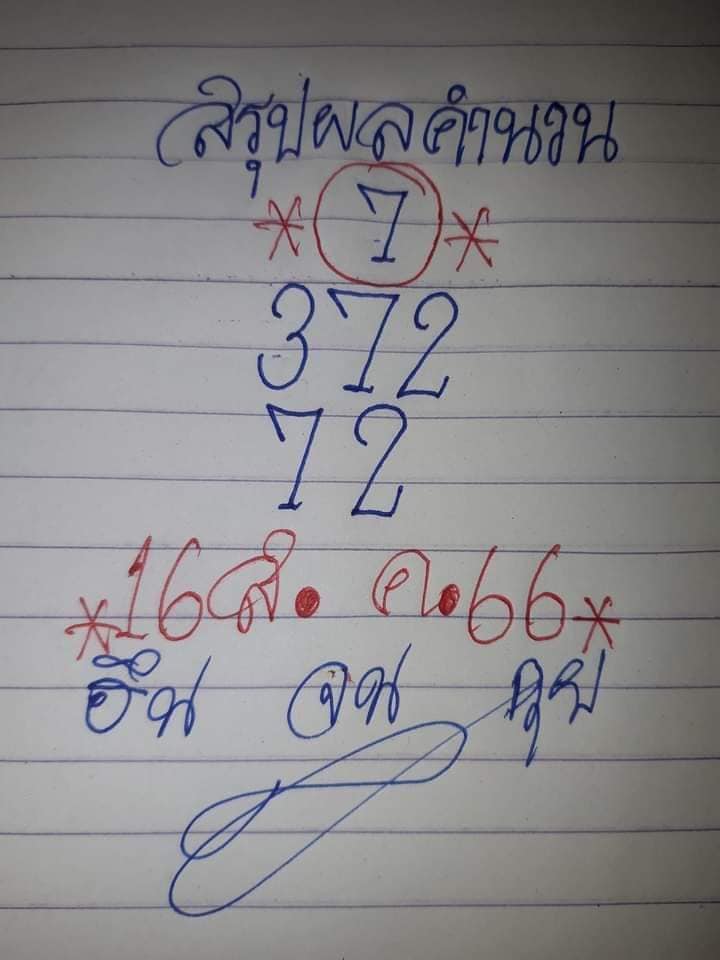 สรุปผลคำนวน
* 7 *
372
72
*16 ส. ค. 66*
จน